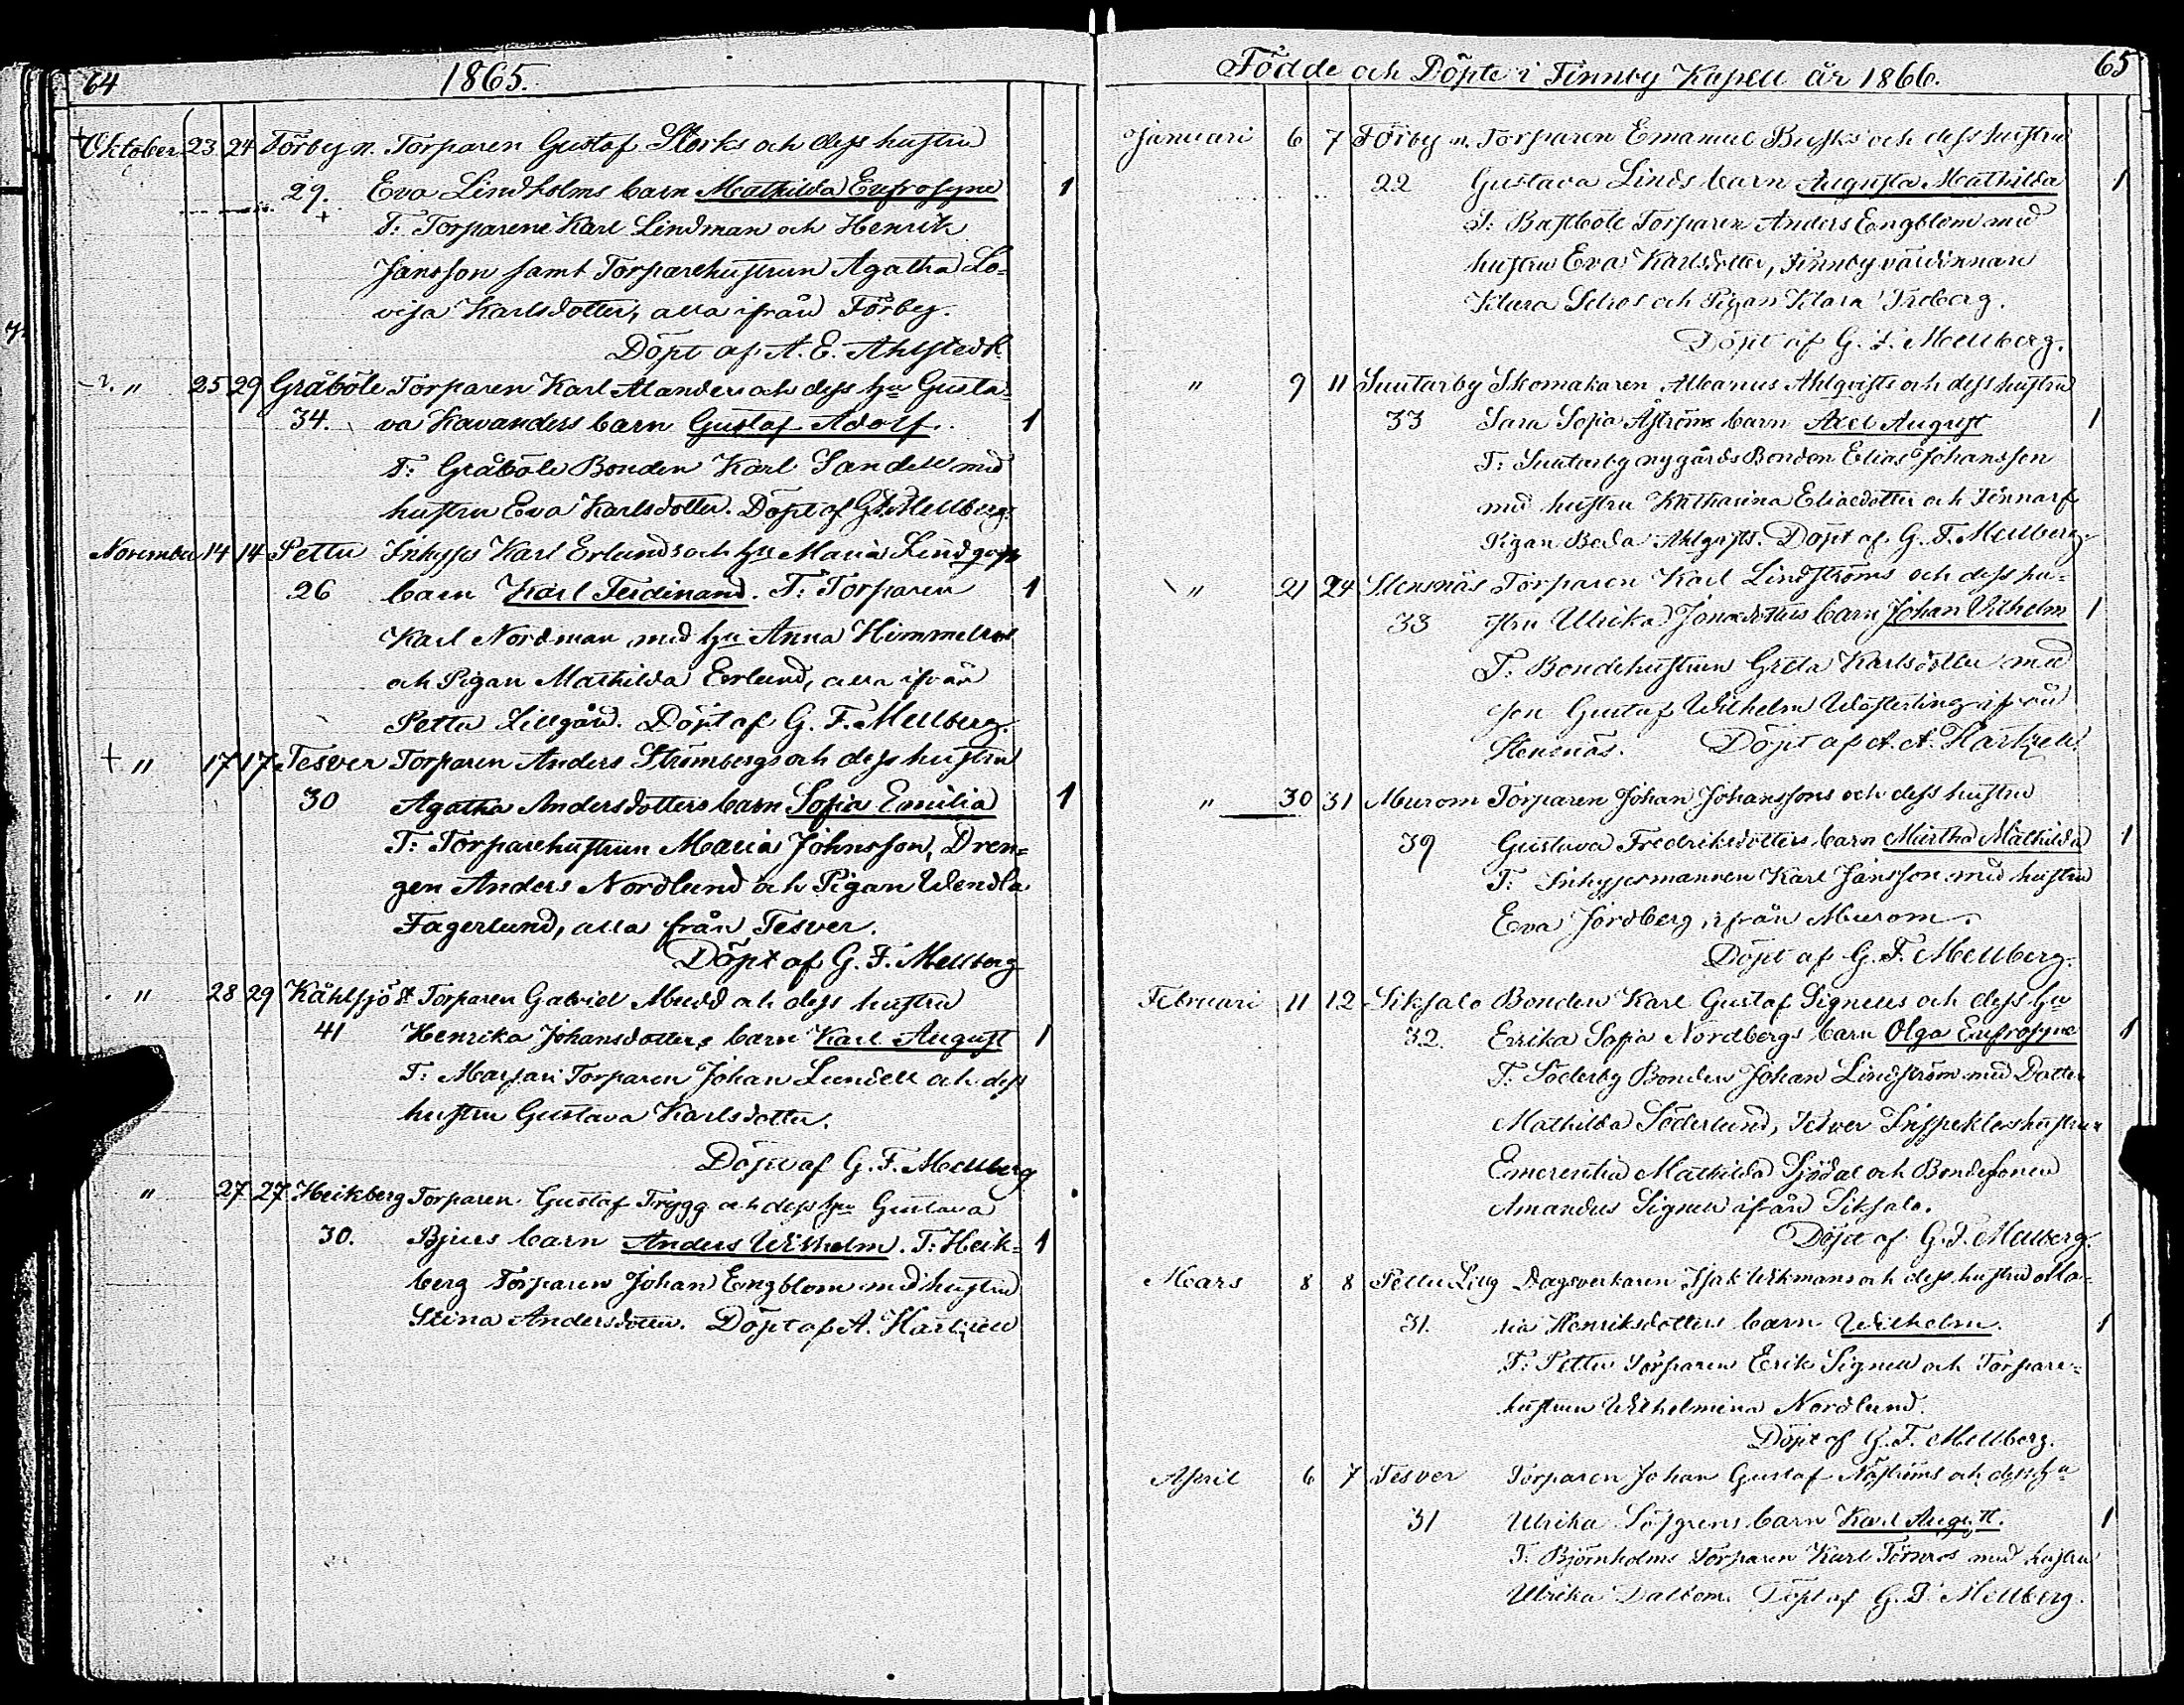 64
1865.
+Oktober 23 24 Förby n. Torparen Gustaf Storks och dess hustru
29. Eva Lindholms barn Mathilda Eufrosyne 1
+
T: Torparene Karl Lindman och Henrik
Jansson samt Torparehustrun Agatha Lo-
visa Karlsdotter, alla ifrån Förby.
Döpt af A. E. Ahlstedt
" 25 29 Gråböle Torparen Karl Alanders och dess hu Gusta-
34. va Kavanders barn Gustaf Adolf. 1
T: Gråböle Bonden Karl Sandell med
hustru Eva Karlsdotter. Döpt af G F Mellberg.
November 14 14 Pettu Inhyses Karl Erlunds och hu Maria Lindqvists
26 barn Karl Ferdinand. T: Torparen 1
Karl Nordman med hu Anna Himmelroos
och Pigan Mathilda Erlund, alla ifrån
Pettu Lillgård. Döpt af G. F. Mellberg.
+ " 17 17 Tesver Torparen Anders Strömbergs och dess hustru
30 Agatha Andersdotters barn Sofia Emilia 1
T: Torparehustrun Maria Johnsson, Dren-
gen Anders Nordlund och Pigan Wendla
Fagerlund, alla från Tesver.
Döpt af G. F. Mellberg
" 28 29 Kåhlsjö Torparen Gabriel Mudd och dess hustru
41 Henrika Johansdotters barn Karl August 1
T: Marsari Torparen Johan Lundell och dess
hustru Gustava Karlsdotter.
Döpt af G. F. Mellberg
" 27 27 Heikberg Torparen Gustaf Trygg och dess hu Gustava
30. Bjurs barn Anders Wilhelm. T: Heik- 1
berg Torparen Johan Engblom med hustru
Stina Andersdotter. Döpt af A. Hartzell
Födde och Döpte i Finnby Kapell år 1866.
65
Januari 6 7 Förby n. Torparen Emanuel Busks och dess hustru
22 Gustava Linds barn Augusta Mathilda 1
T: Bastböle Torparen Anders Engblom med
hustru Eva Karlsdotter, Finnby värdinnan
Klara Selros och Pigan Klara Freberg.
Döpt af G. F. Mellberg.
" 9 11 Suutarby Skomakaren Albanus Ahlqvists och dess hustru
33 Sara Sofia Åströms barn Axel August 1
T: Suutarby nygårds Bonden Elias Johansson
med hustru Katharina Eliaedotter och
Pigan Beda Ahlqvist. Döpt af G. F. Mellberg.
" 21 24 Stensnäs Torparen Karl Lindströms och dess hu-
33 stru Ulrika Jonaedotters barn Johan Vilhelm 1
T: Bondehustrun Greta Karlsdotter med
son Gustaf Wilhelm Westerling ifrån
Stensnäs. Döpt af A. A. Hartzell
" 30 31 Murom Torparen Johan Johanssons och dess hustru
39 Gustava Fredriksdotters barn Martha Mathilda 1
T: Inhysesmannen Karl Jansson med hustru
Eva Jordberg, ifrån Murom.
Döpt af G. F. Mellberg.
Februari 11 12 Siksalo Bonden Karl Gustaf Signells och dess hu
32. Errika Sofia Nordbergs barn Olga Eufrosyne 1
T: Söderby Bonden Johan Lindström med Dotter
Mathilda Söderlund, Tesver Inspektorshustrun
Emerentia Mathilda Sjödal och Bondesonen
Amandus Signell ifrån Siksalo.
Döpt af G. F. Mellberg.
Mars 8 8 Pettu Lillg Dagsverkaren Isak Wikmans och dess hustru Ma-
31. ria Henriksdotters barn Wilhelm. 1
T: Pettu Torparen Erik Signell och Torpare-
hustrun Wilhelmina Nordlund.
Döpt af G. F. Mellberg.
April 6 7 Tesver Torparen Johan Gustaf Näströms och dess hu
31 Ulrika Löfgrens barn Karl August. 1
T: Björnholms Torparen Karl Törnros med hustru
Ulrika Dalbom. Döpt af G. F. Mellberg.